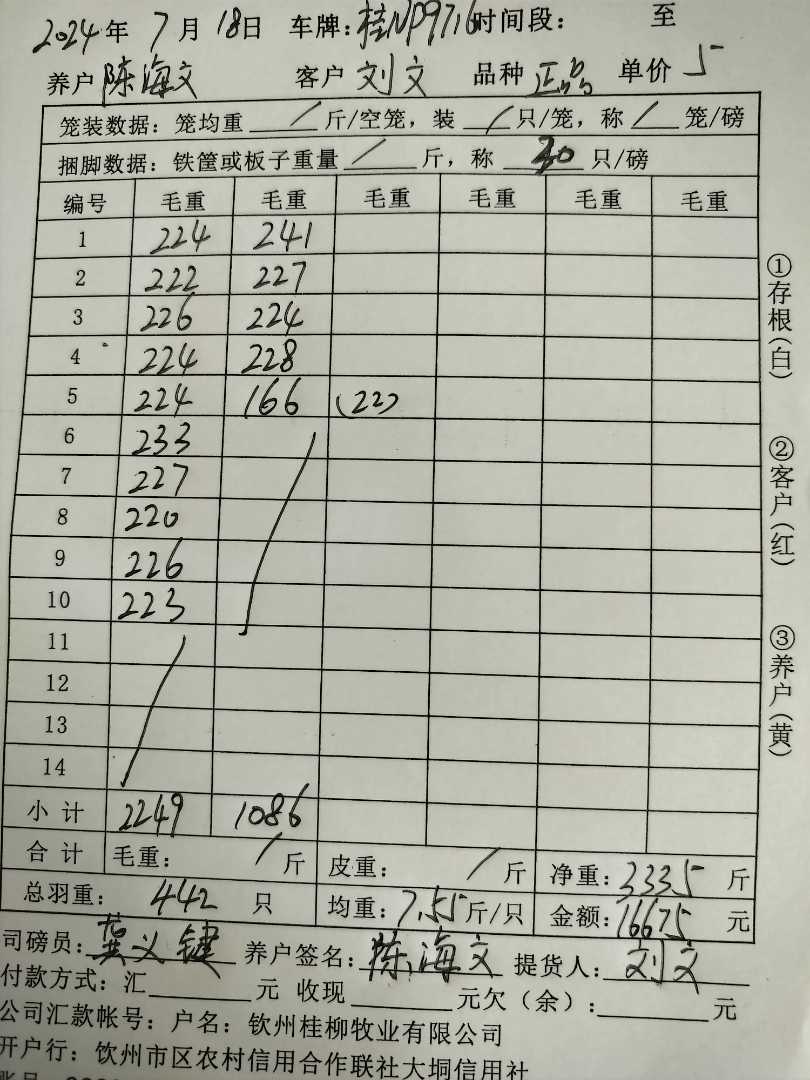 2024年 7月 18日 车牌:桂NP9716时间段: 至
养户 陈海文 客户 刘文 品种 正品 单价 5
笼装数据: 笼均重 / 斤/空笼, 装 / 只/笼, 称 / 笼/磅
捆脚数据: 铁筐或板子重量 / 斤, 称 30 只/磅
编号 毛重 毛重 毛重 毛重 毛重 毛重
1 224 241
2 222 227
3 226 224
4 224 228
5 224 166 (22)
6 233
7 227
8 220
9 226
10 223
11
12
13
14
小计 2249 1086
合计 毛重: / 斤 皮重: / 斤 净重: 3335 斤
总羽重: 442 只 均重: 7.55 斤/只 金额: 16675 元
司磅员: 黄义键 养户签名: 陈海文 提货人: 刘文
付款方式: 汇 元 收现 元欠(余): 元
公司汇款帐号: 户名: 钦州桂柳牧业有限公司
开户行: 钦州市区农村信用合作联社大垌信用社
①存根(白)
②客户(红)
③养户(黄)